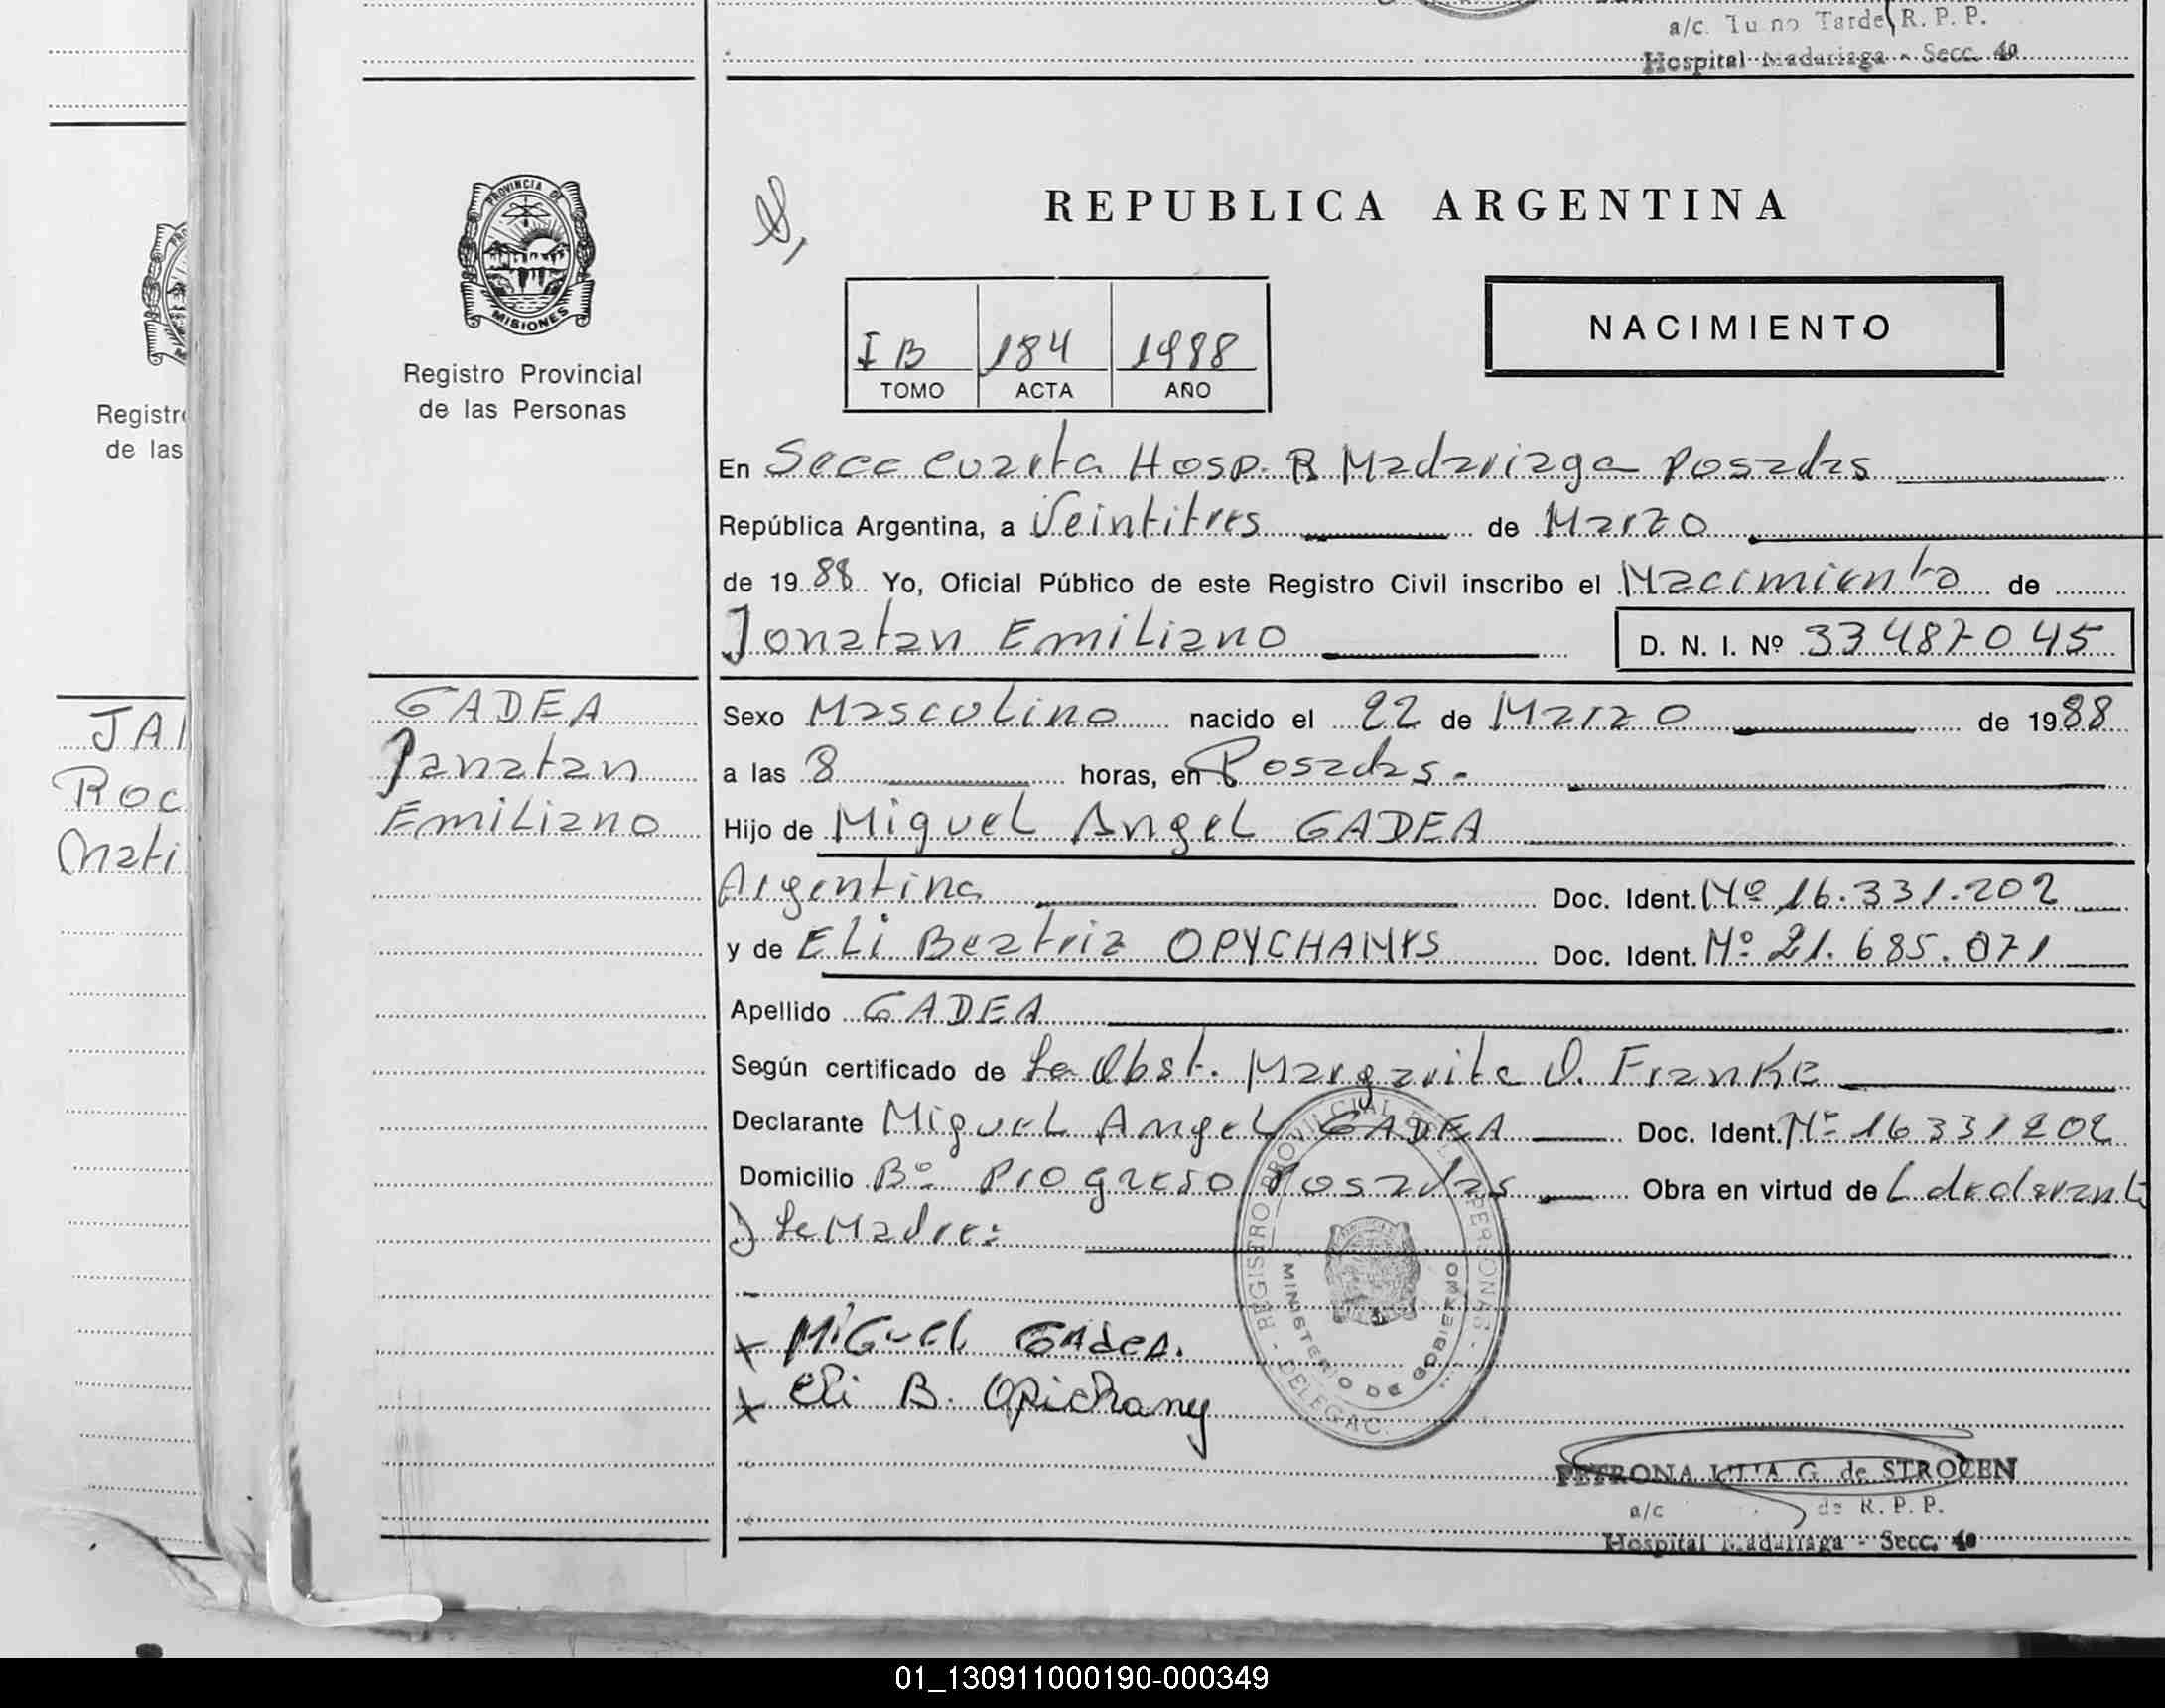 a/c. Turno Tarde R. P. P.
Hospital Madariaga - Secc. 4a
PROVINCIA DE
MISIONES
Registro Provincial
de las Personas
REPUBLICA ARGENTINA
NACIMIENTO
I B 184 1988
TOMO ACTA AÑO
Registr
de las
En Secc cuarta Hosp. R Madariaga Posadas
República Argentina, a Veintitres de Marzo
de 1988 Yo, Oficial Público de este Registro Civil inscribo el Nacimiento de
Jonatan Emiliano D. N. I. Nº 33487045
JA
Roc
Mati
GADEA
Janatan
Emiliano
Sexo Masculino nacido el 22 de Marzo de 1988
a las 8 horas, en Posadas.
Hijo de Miguel Angel GADEA
Argentina Doc. Ident. Nº 16.331.202
y de Eli Beatriz Doc. Ident. Nº 21.685.071
Apellido GADEA
Según certificado de La Obst. Margarita D. Franke
Declarante Miguel Angel GADEA Doc. Ident. Nº 16331202
Domicilio Bº Progreso Posadas Obra en virtud de
La Madre:
REGISTRO PROVINCIAL DE LAS PERSONAS - DELEGAC.
MINISTERIO DE GOBIERNO
x Miguel Gadea.
x Eli B. Opichany
PETRONA G. de STROCEN
a/c de R. P. P.
Hospital Madariaga - Secc. 4a
01_130911000190-000349